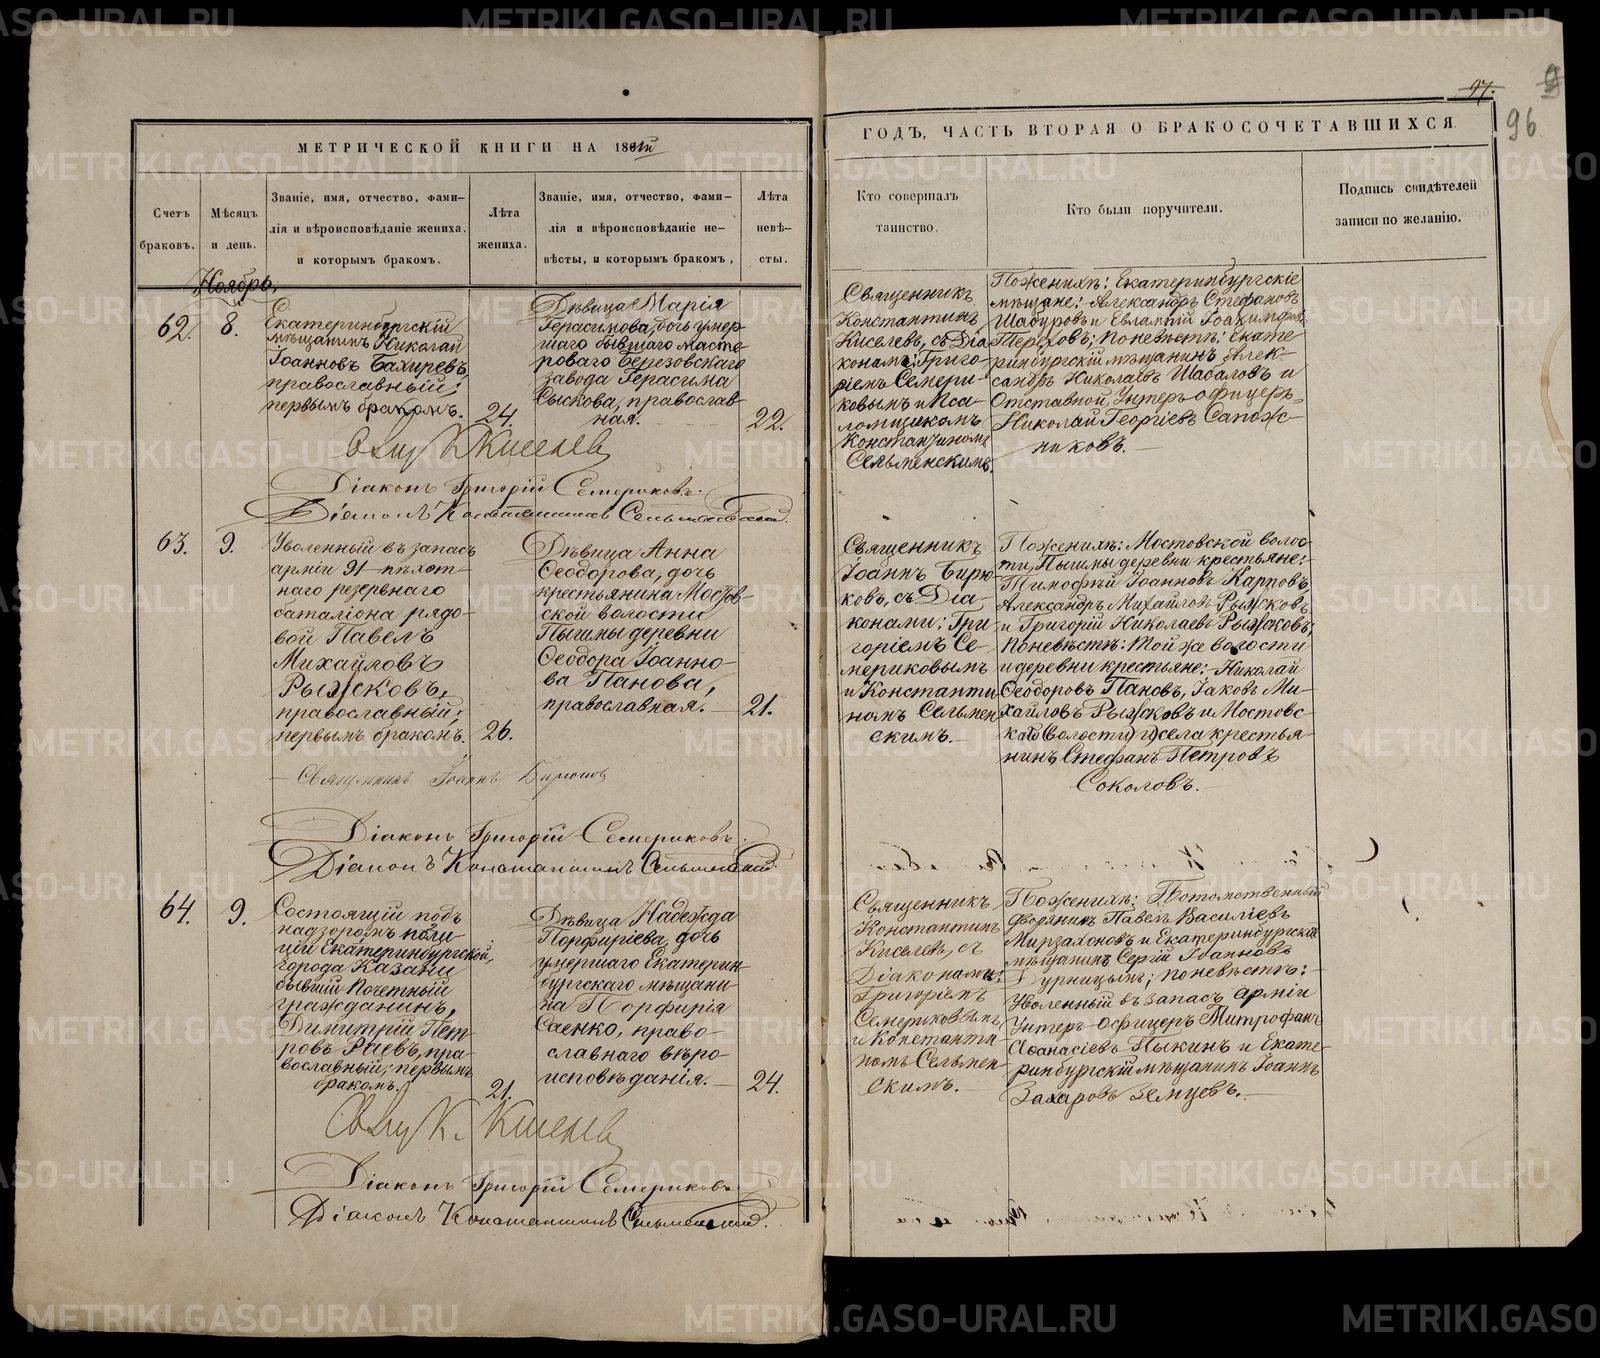 97.
96
МЕТРИЧЕСКОЙ КНИГИ НА 188
ГОДЪ, ЧАСТЬ ВТОРАЯ О БРАКОСОЧЕТАВШИХСЯ
Счетъ
браковъ.
Мѣсяцъ
и день.
Званіе, имя, отчество, фами-
лія и вѣроисповѣданіе жениха,
и которымъ бракомъ.
Лѣта
жениха.
Званіе, имя, отчество, фами-
лія и вѣроисповѣданіе не-
вѣсты, и которымъ бракомъ,
Лѣта
невѣ-
сты.
Кто совершалъ
таинство.
Кто были поручители.
Подпись свидѣтелей
записи по желанію.
Ноябрь.
62.
8.
Екатеринбургскій
мѣщанинъ Николай
Іоанновъ Бахиревъ,
православный;
первымъ бракомъ.
24.
Дѣвица Марія
Герасимова, дочь умер-
шаго бывшаго масте-
роваго Березовскаго
завода Герасима
Сыскова, православ-
ная.
22.
Священникъ
Константинъ
Киселевъ, съ Діа
конами: Григо-
ріемъ Семери-
ковымъ и Пса-
ломщикомъ
Константиномъ
Сельменскимъ.
По женихѣ: Екатеринбургскіе
мѣщане: Александръ Стефановъ
Шабуровъ и Евлампій Іоакимовъ
Тереховъ; по невѣстѣ: Екате-
ринбургскій мѣщанинъ Алек-
сандръ Николаевъ Шабаловъ и
Отставной Унтеръ-офицеръ
Николай Георгіевъ Сапож-
никовъ.
Свящ. К. Киселевъ
Діаконъ Григорій Семериковъ.
Діаконъ Константинъ Сельменскій.
63.
9.
Уволенный въ запасъ
арміи 91 пѣхот-
наго резервнаго
баталіона рядо-
вой Павелъ
Михайловъ
Рыжковъ,
православный;
первымъ бракомъ.
26.
Дѣвица Анна
Ѳеодорова, дочь
крестьянина Мостов-
ской волости
Пышмы деревни
Ѳеодора Іоанно-
ва Панова,
православная.
21.
Священникъ
Іоаннъ Бирю
ковъ, съ Діа-
конами: Гри-
горіемъ Се-
мериковымъ
и Константи
номъ Сельмен
скимъ.
По женихѣ: Мостовской волос-
ти, Пышмы деревни крестьяне:
Тимофѣй Іоанновъ Карповъ,
Александръ Михайловъ Рыжковъ
и Григорій Николаевъ Рыжковъ;
По невѣстѣ: Той же волости
и деревни крестьяне: Николай
Ѳеодоровъ Пановъ, Іаковъ Ми-
хайловъ Рыжковъ и Мостовс-
кой волости и села крестья-
нинъ Стефанъ Петровъ
Соколовъ.
Священникъ Іоаннъ Бирюковъ
Діаконъ Григорій Семериковъ.
Діаконъ Константинъ Сельменскій.
64.
9.
Состоящій подъ
надзоромъ поли-
ціи Екатеринбургской,
города Казани
бывшій Почетный
гражданинъ,
Димитрій Пет-
ровъ Раевъ, пра-
вославный; первымъ
бракомъ.
21.
Дѣвица Надежда
Порфиріева, дочь
умершаго Екатерин-
бургскаго мѣщани-
на Порфирія
Саенко, право-
славнаго вѣро-
исповѣданія.
24.
Священникъ
Константинъ
Киселевъ, съ
Діаконами:
Григоріемъ
Семериковымъ
и Константи-
номъ Сельмен
скимъ.
По женихѣ: Потомственный
дворянинъ Павелъ Василіевъ
Мирзахоновъ и Екатеринбургскій
мѣщанинъ Сергій Іоанновъ
Бурницынъ; по невѣстѣ:
Уволенный въ запасъ арміи
Унтеръ-офицеръ Митрофанъ
Аѳанасіевъ Пыкинъ и Екате-
ринбургскій мѣщанинъ Іоаннъ
Захаровъ Земцевъ.
Свящ. К. Киселевъ
Діаконъ Григорій Семериковъ
Діаконъ Константинъ Сельменскій.
METRIKI.GASO-URAL.RU